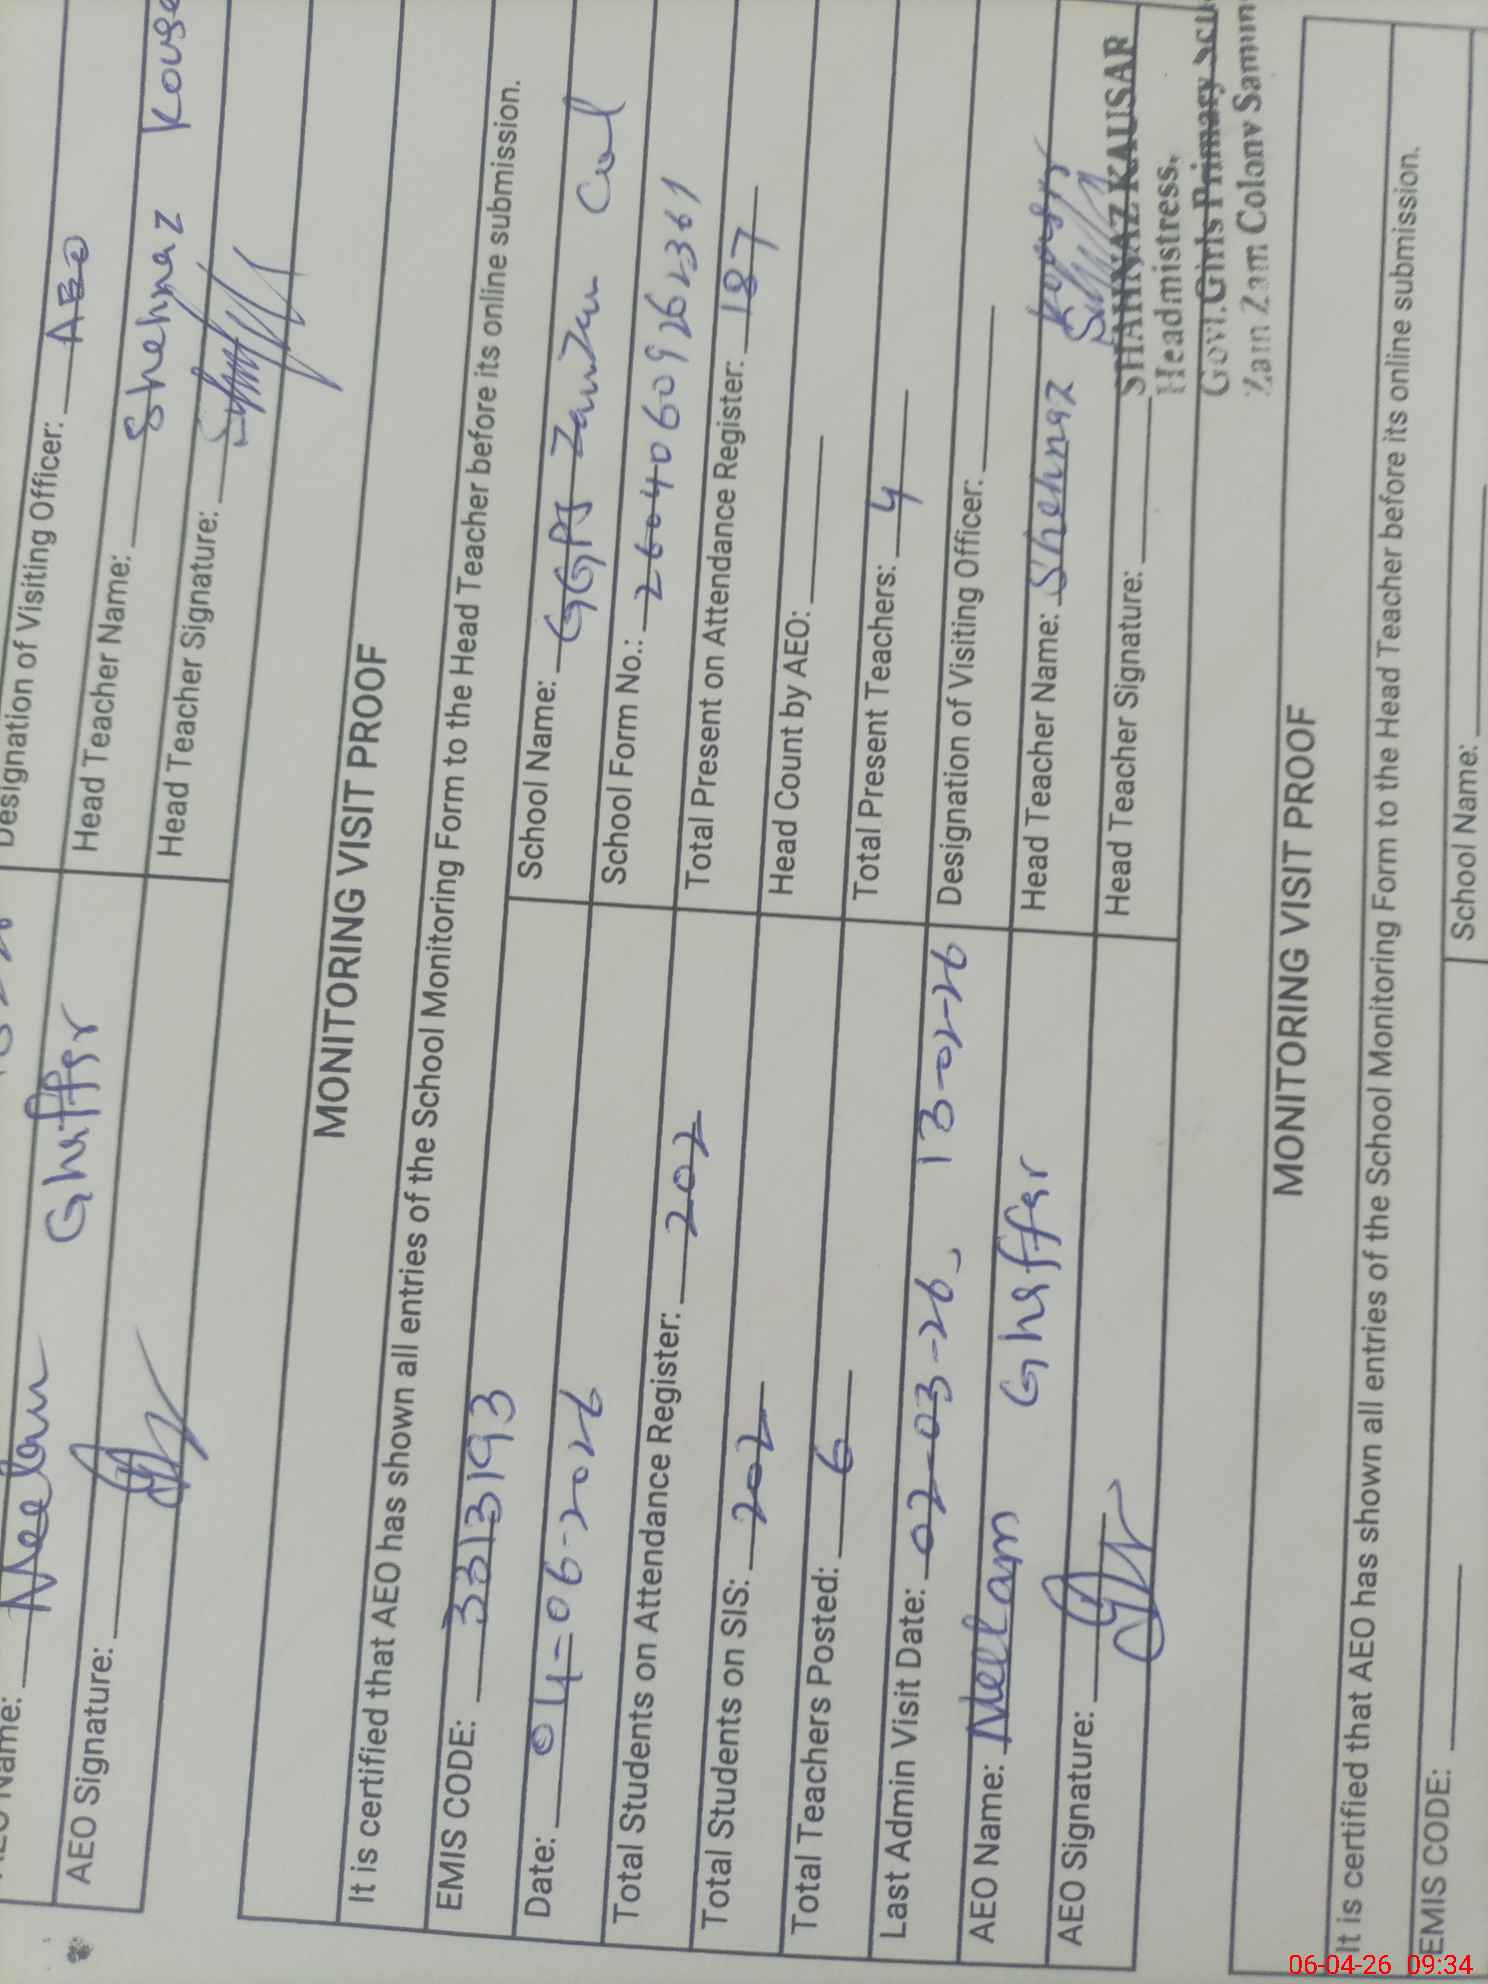 Designation of Visiting Officer: AEO
Name: Neelam Ghaffar
Head Teacher Name: Shehnaz
AEO Signature:
Head Teacher Signature:
MONITORING VISIT PROOF
It is certified that AEO has shown all entries of the School Monitoring Form to the Head Teacher before its online submission.
EMIS CODE: 33313193
School Name: GGPS Zam Zam Col
Date: 04-06-2026
School Form No.: 26040609262361
Total Students on Attendance Register: 202
Total Present on Attendance Register: 187
Total Students on SIS: 202
Head Count by AEO:
Total Teachers Posted: 6
Total Present Teachers: 4
Last Admin Visit Date: 02-03-26, 13-02-26
Designation of Visiting Officer:
AEO Name: Neelam Ghaffar
Head Teacher Name: Shehnaz Kousar
AEO Signature:
Head Teacher Signature:
SHAHNAZ KAUSAR
Headmistress,
Govt. Girls Primary
Zam Zam Colony
MONITORING VISIT PROOF
It is certified that AEO has shown all entries of the School Monitoring Form to the Head Teacher before its online submission.
EMIS CODE:
School Name:
06-04-26 09:34